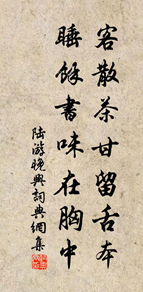 客散茶甘留舌本
睡餘書味在胸中
陸游晚興詞典網集